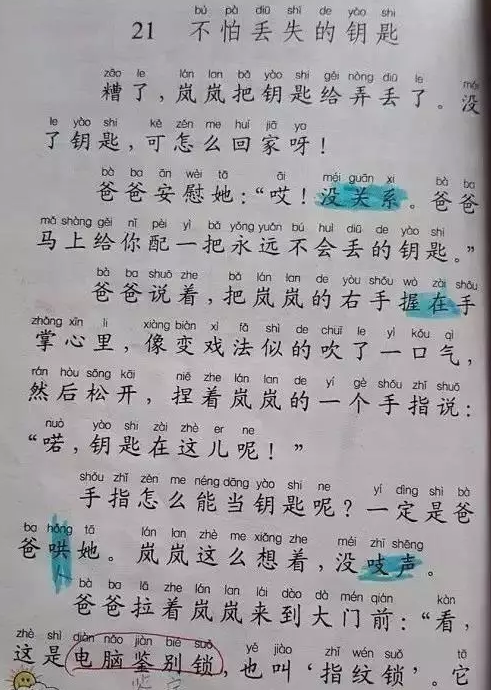 bù pà diū shī de yào shi
21 不怕丢失的钥匙
zāo le lán lan bǎ yào shi gěi nòng diū le méi
糟了，岚岚把钥匙给弄丢了。没
le yào shi kě zěn me huí jiā ya
了钥匙，可怎么回家呀！
bà ba ān wèi tā āi méi guān xi bà ba
爸爸安慰她：“哎！没关系。爸爸
mǎ shàng gěi nǐ pèi yì bǎ yǒng yuǎn bú huì diū de yào shi
马上给你配一把永远不会丢的钥匙。”
bà ba shuō zhe bǎ lán lan de yòu shǒu wò zài shǒu
爸爸说着，把岚岚的右手握在手
zhǎng xīn li xiàng biàn xì fǎ shì de chuī le yì kǒu qì
掌心里，像变戏法似的吹了一口气，
rán hòu sōng kāi niē zhe lán lan de yí gè shǒu zhǐ shuō
然后松开，捏着岚岚的一个手指说：
nuò yào shi zài zhè er ne
“喏，钥匙在这儿呢！”
shǒu zhǐ zěn me néng dāng yào shi ne yí dìng shì bà
手指怎么能当钥匙呢？一定是爸
ba hǒng tā lán lan zhè me xiǎng zhe méi zhī shēng
爸哄她。岚岚这么想着，没吱声。
bà ba lā zhe lán lan lái dào dà mén qián kàn
爸爸拉着岚岚来到大门前：“看，
zhè shì diàn nǎo jiàn bié suǒ yě jiào zhǐ wén suǒ tā
这是电脑鉴别锁，也叫‘指纹锁’。它